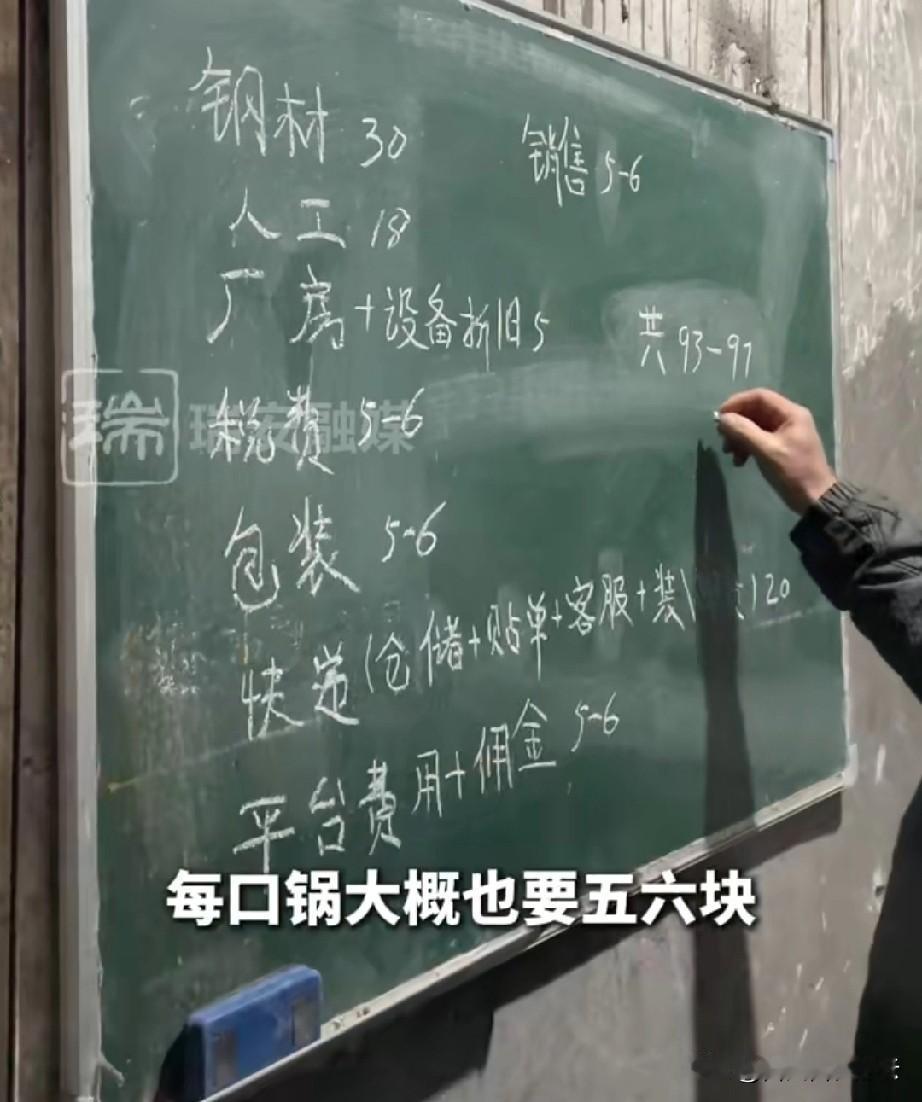 钢材 30
人工 18
厂房+设备折旧5
税费 5-6
包装 5-6
快递(仓储+贴单+客服+装\ )20
平台费用+佣金 5-6
销售 5-6
共 93-97
瑞 瑞安融媒
每口锅大概也要五六块